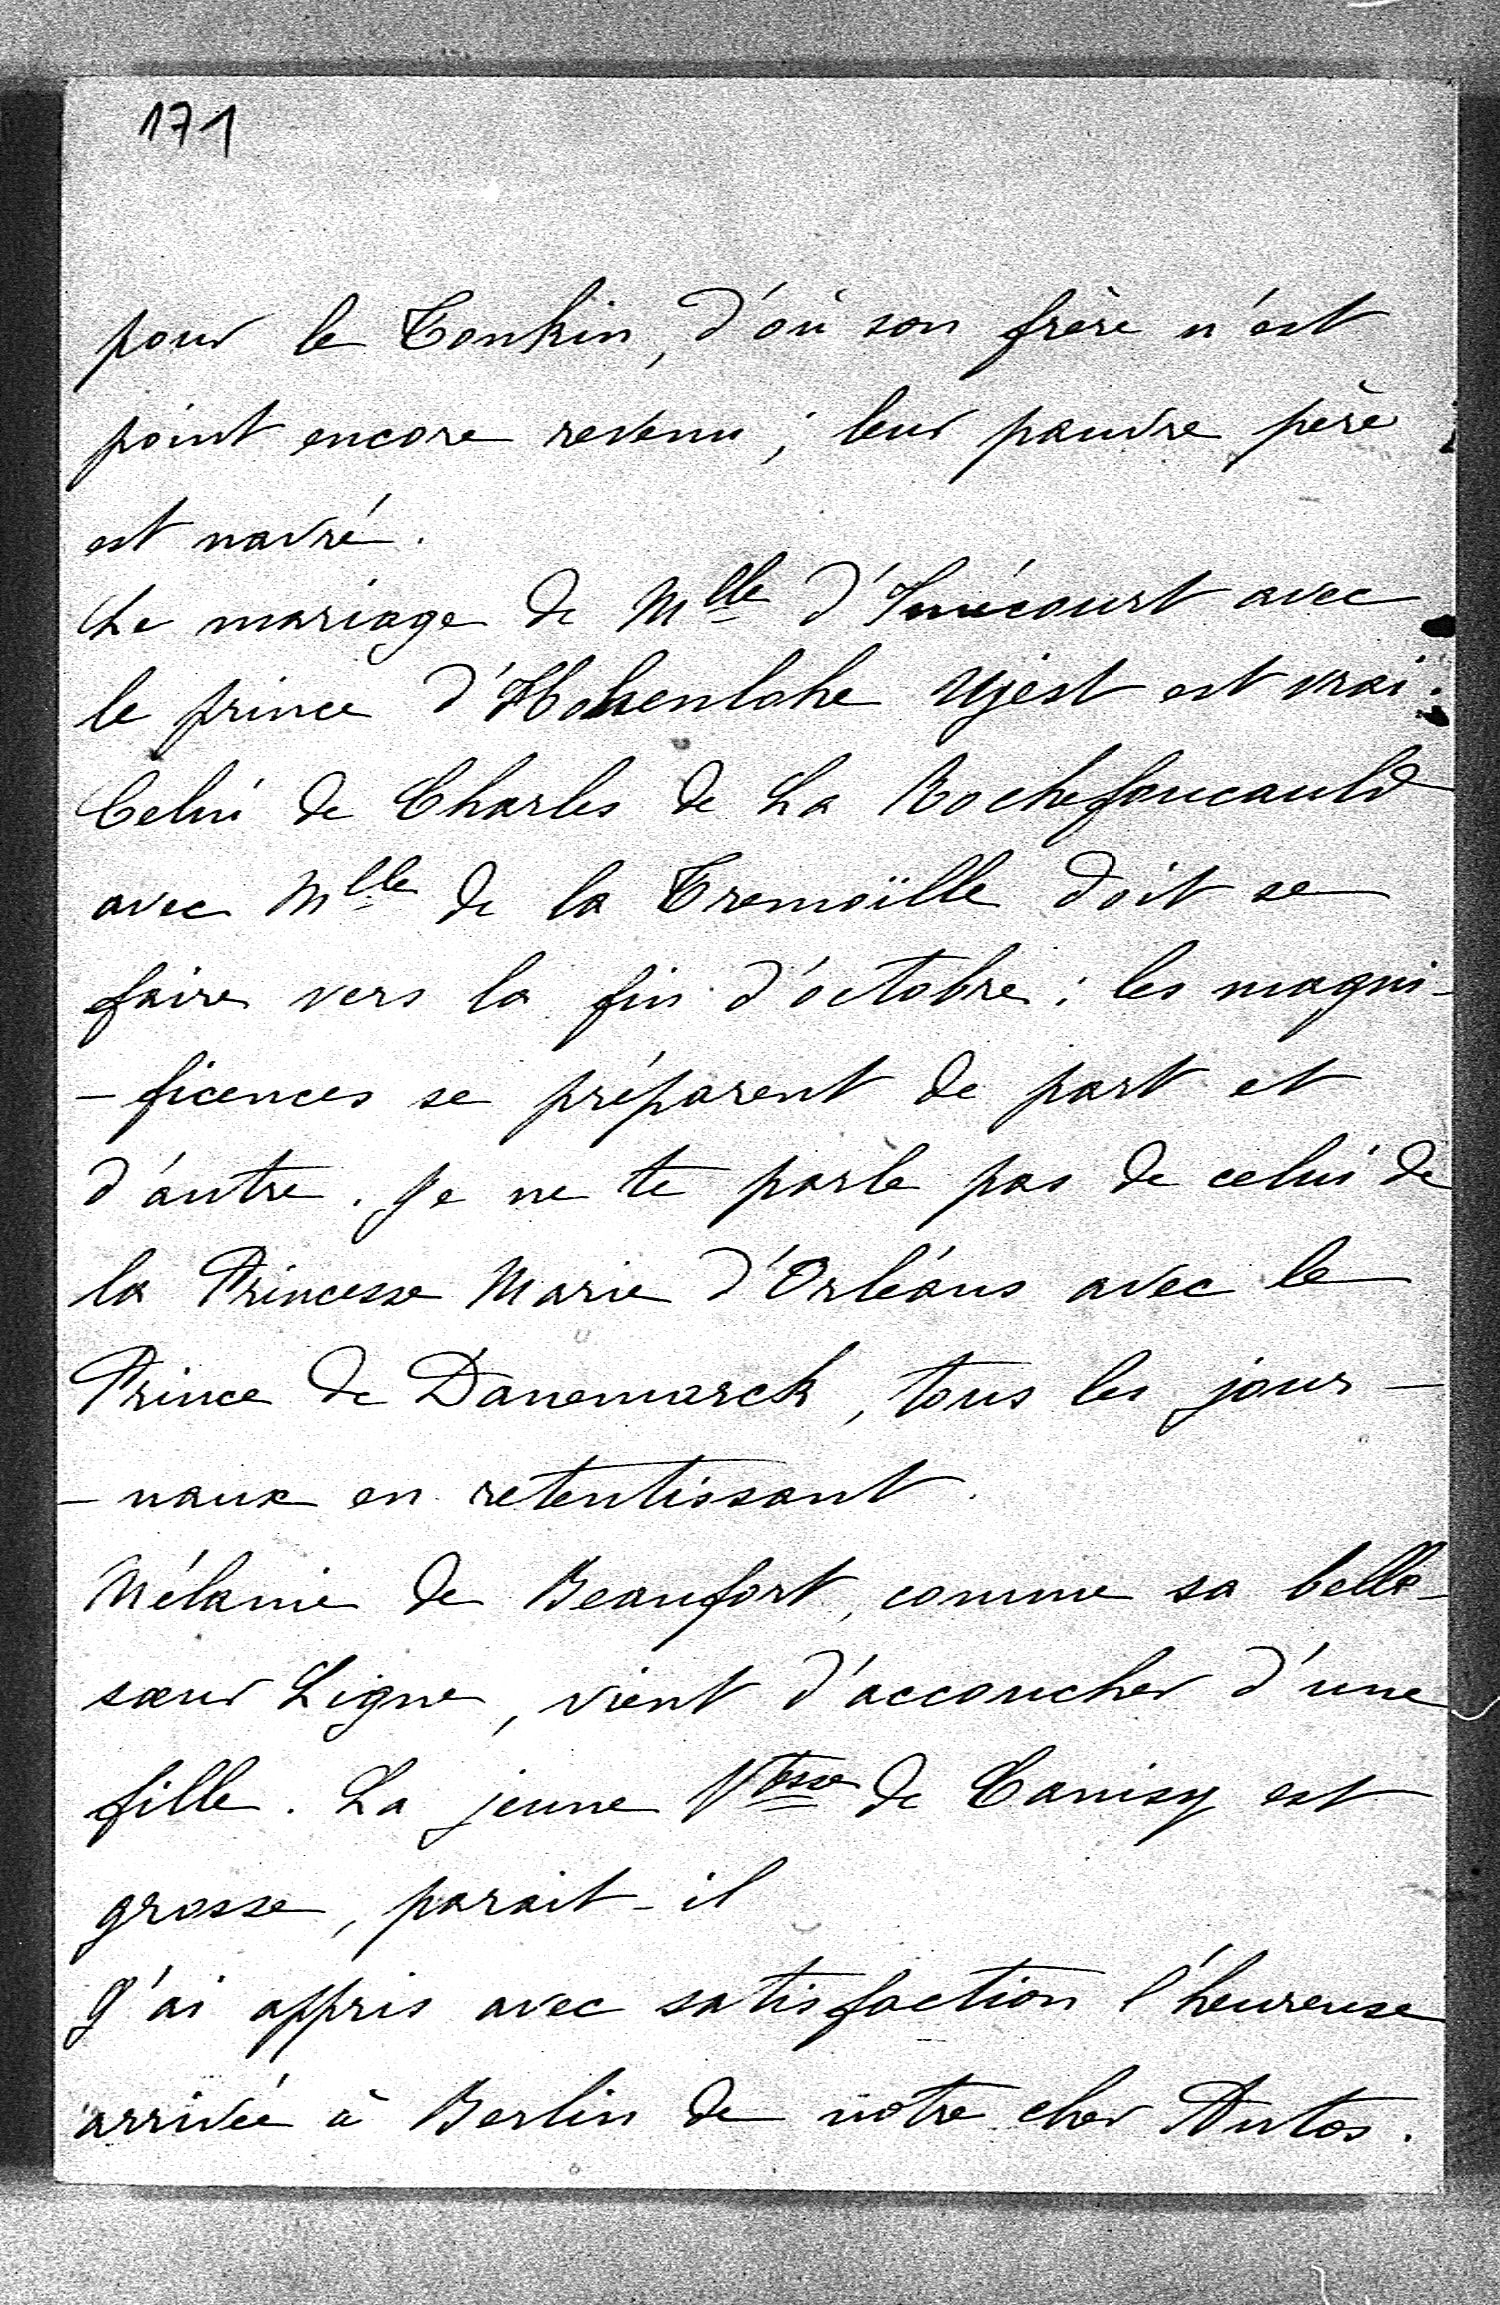 171
pour le Tonkin, d'où son frère n'est
point encore revenu ; leur pauvre père
est navré.
Le mariage de Mlle d'Imécourt avec
le prince d'Hohenlohe Ujest est vrai.
Celui de Charles de La Rochefoucauld
avec Mlle de la Tremoïlle doit se
faire vers la fin d'octobre : les magni-
-ficences se préparent de part et
d'autre. Je ne te parle pas de celui de
la Princesse Marie d'Orléans avec le
Prince de Danemarck, tous les jour-
-naux en retentissant.
Mélanie de Beaufort, comme sa belle-
sœur Ligne, vient d'accoucher d'une
fille. La jeune Vtesse de Canisy est
grosse, parait-il
J'ai appris avec satisfaction l'heureuse
arrivée à Berlin de notre cher